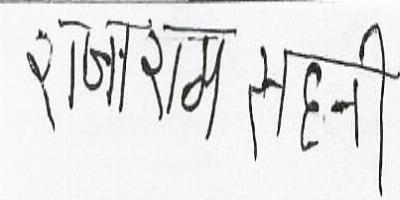 राजाराम सहनी